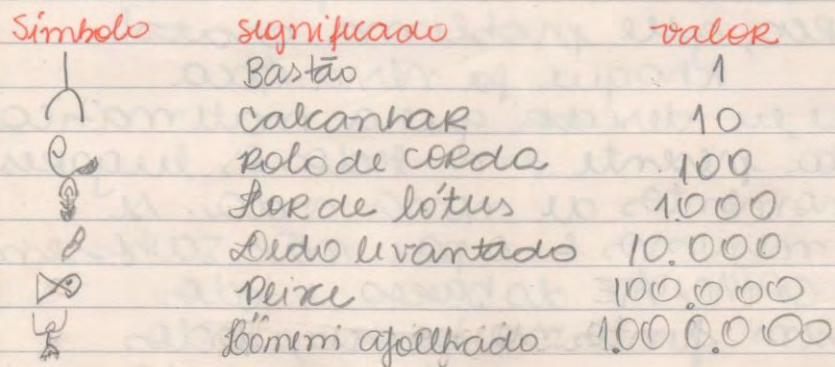 Símbolo significado valor
Bastão 1
calcanhar 10
Rolo de corda 100
Flor de lótus 1.000
Dedo levantado 10.000
Peixe 100.000
Homem ajoelhado 1.000.000